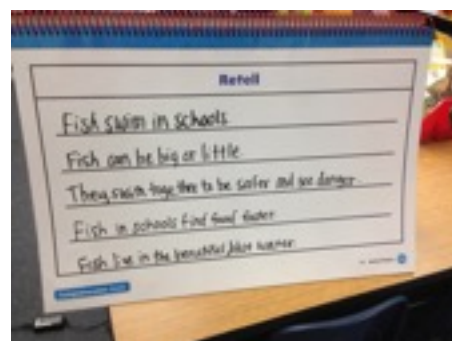 Retell
Fish swim in schools
Fish can be big or little.
They swim together to be safer and see danger.
Fish in schools find food faster
Fish live in the beautiful blue water.